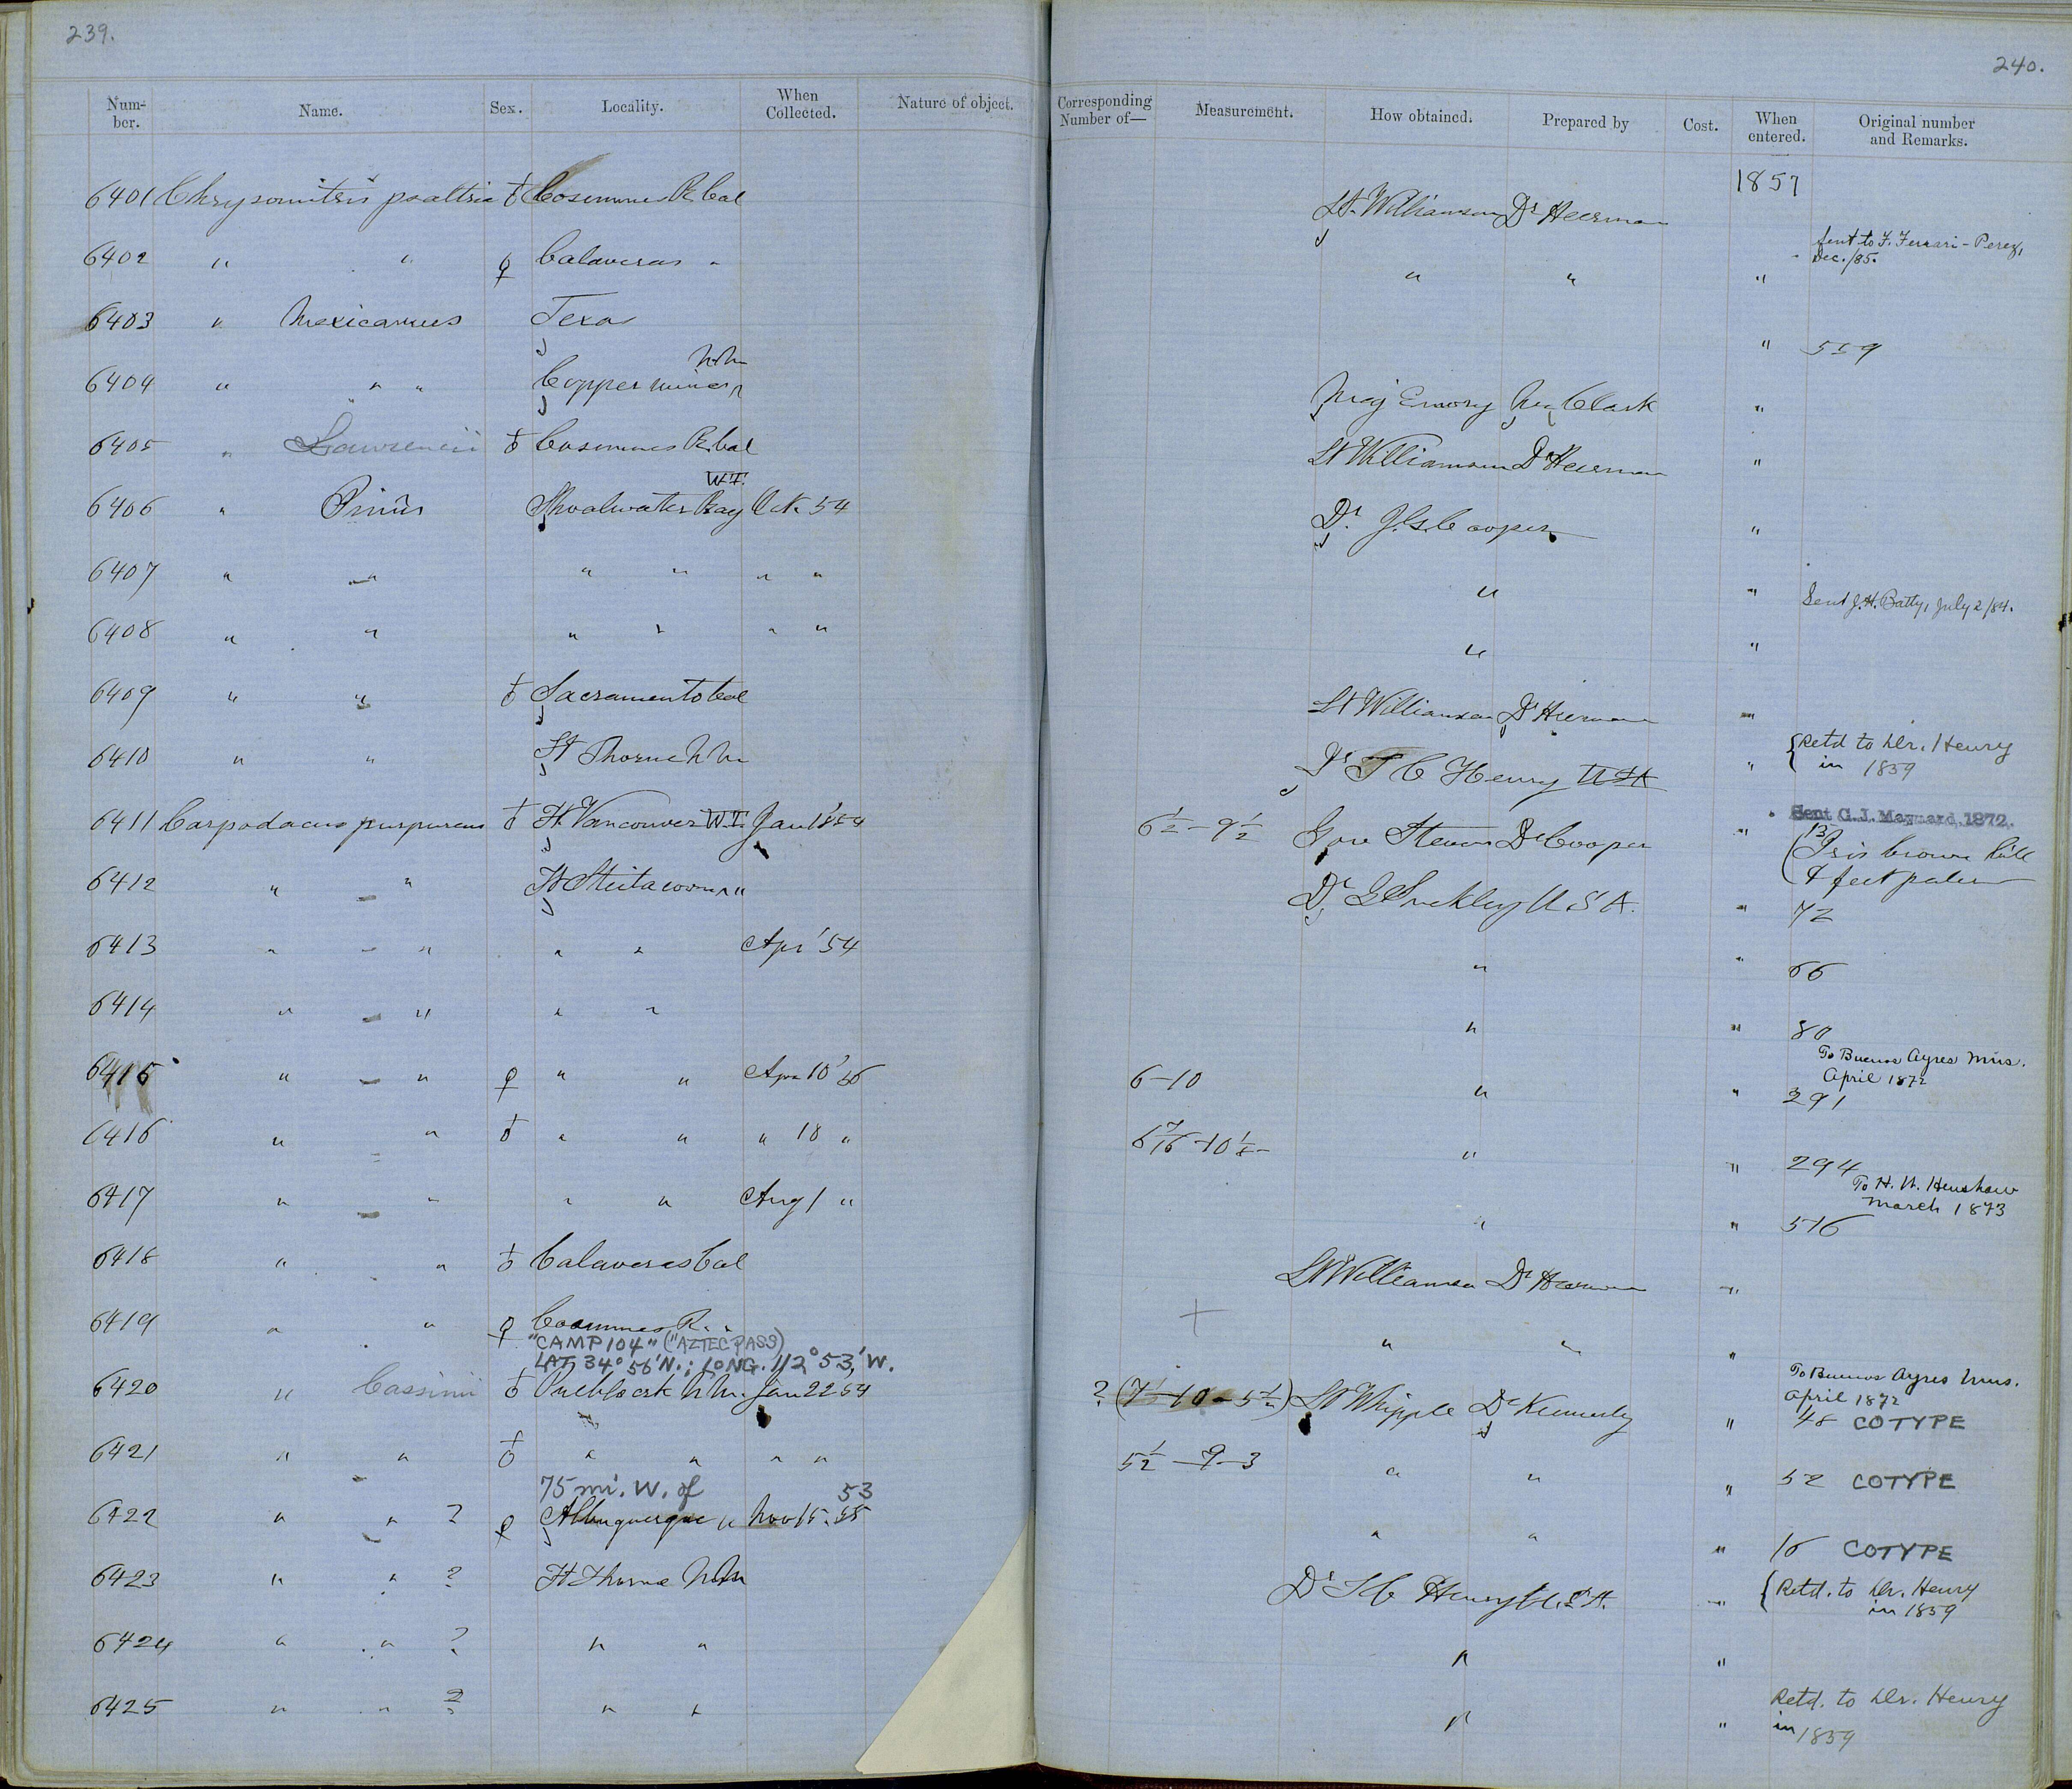 239.
240.
Num-ber. Name. Sex. Locality. When Collected. Nature of object. Corresponding Number of— Measurement. How obtained. Prepared by Cost. When entered. Original number and Remarks.
1857
6401 Chrysomitris psaltria ♂ Cosumnes R. Cal Lt. Williamson Dr Heerman
6402 " " ♀ Calaveras " " " " Sent to F. Ferrari-Perez, Dec./85.
6403 " Mexicanus Texas " 559
6404 " " " Copper mines NM Maj Emory Clark "
6405 " Lawrencii ♂ Cosumnes R. Cal Lt Williamson Dr Heerman "
6406 " Pinus Shoalwater Bay W.T. Oct. 54 Dr. J. G. Cooper "
6407 " " " " " " " " Sent J. H. Batty, July 2/84.
6408 " " " " " " " "
6409 " " ♂ Sacramento Cal Lt Williamson Dr Heerman "
6410 " " Ft Thorne NM Dr T C Henry USA " { Retd to Dr. Henry in 1859
6411 Carpodacus purpureus ♂ Ft. Vancouver W.T. Jan 18 54 6 1/2 - 9 1/2 Gov Stevens Dr Cooper " Sent C.J. Maynard, 1872. (13 Iris brown bill & feet paler
6412 " " Ft Steilacoom " " Dr. G Suckley U S A. " 72
6413 " " " " Apr '54 " " 66
6414 " " " " " " 80
6415 " " ♀ " " Apr 10 '56 6-10 " " To Buenos Ayres Mus. April 1872 291
6416 " " ♂ " " " 18 " 6 7/16 - 10 1/8 " " 294
6417 " " " " Aug 1 " " " To H. W. Henshaw March 1873 516
6418 " " ♂ Calaveras Cal Lt Williamson Dr Heerman "
6419 " " ♀ Cosumnes R. " + " " "
"CAMP 104" ("AZTEC PASS) LAT. 34° 56' N.; LONG. 112° 53,' W.
6420 " Cassinii ♂ Pueblo crk NM. Jan 22 54 ? (7 - 10 - 5 1/2) Lt Whipple Dr Kennerly " To Buenos Ayres Mus. April 1872 48 COTYPE
6421 " " ♂ " " " " 5 1/2 - 9 - 3 " " " 52 COTYPE
75 mi. W. of 53
6422 " " ? ♀ Albuquerque " Nov 15. 55 " " " 16 COTYPE
6423 " " ? Ft Thorne NM Dr T C Henry U.S.A. " { Retd. to Dr. Henry in 1859
6424 " " ? " " " "
6425 " " ? " " " " Retd. to Dr. Henry in 1859